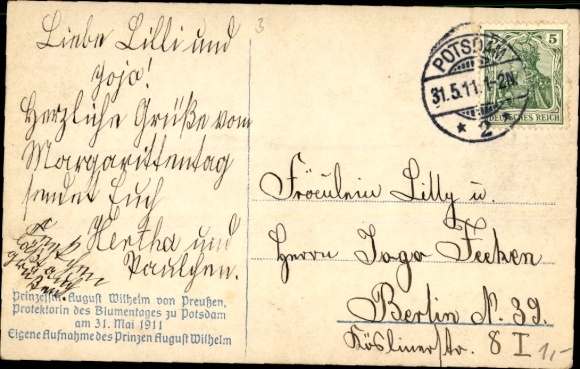 Liebe Lilli und
Joja!
Herzliche Grüße vom
Margarittentag
sendet Euch
Hertha und
Paulchen.
Prinzessin August Wilhelm von Preußen,
Protektorin des Blumentages zu Potsdam
am 31. Mai 1911
Eigene Aufnahme des Prinzen August Wilhelm
3
POTSDAM
31.5.11.1-2N.
* 2 *
5
DEUTSCHES REICH
Fräulein Lilly u.
Herrn Jago Fecken
Berlin N. 39.
Kösliner str. 8 I
1,-